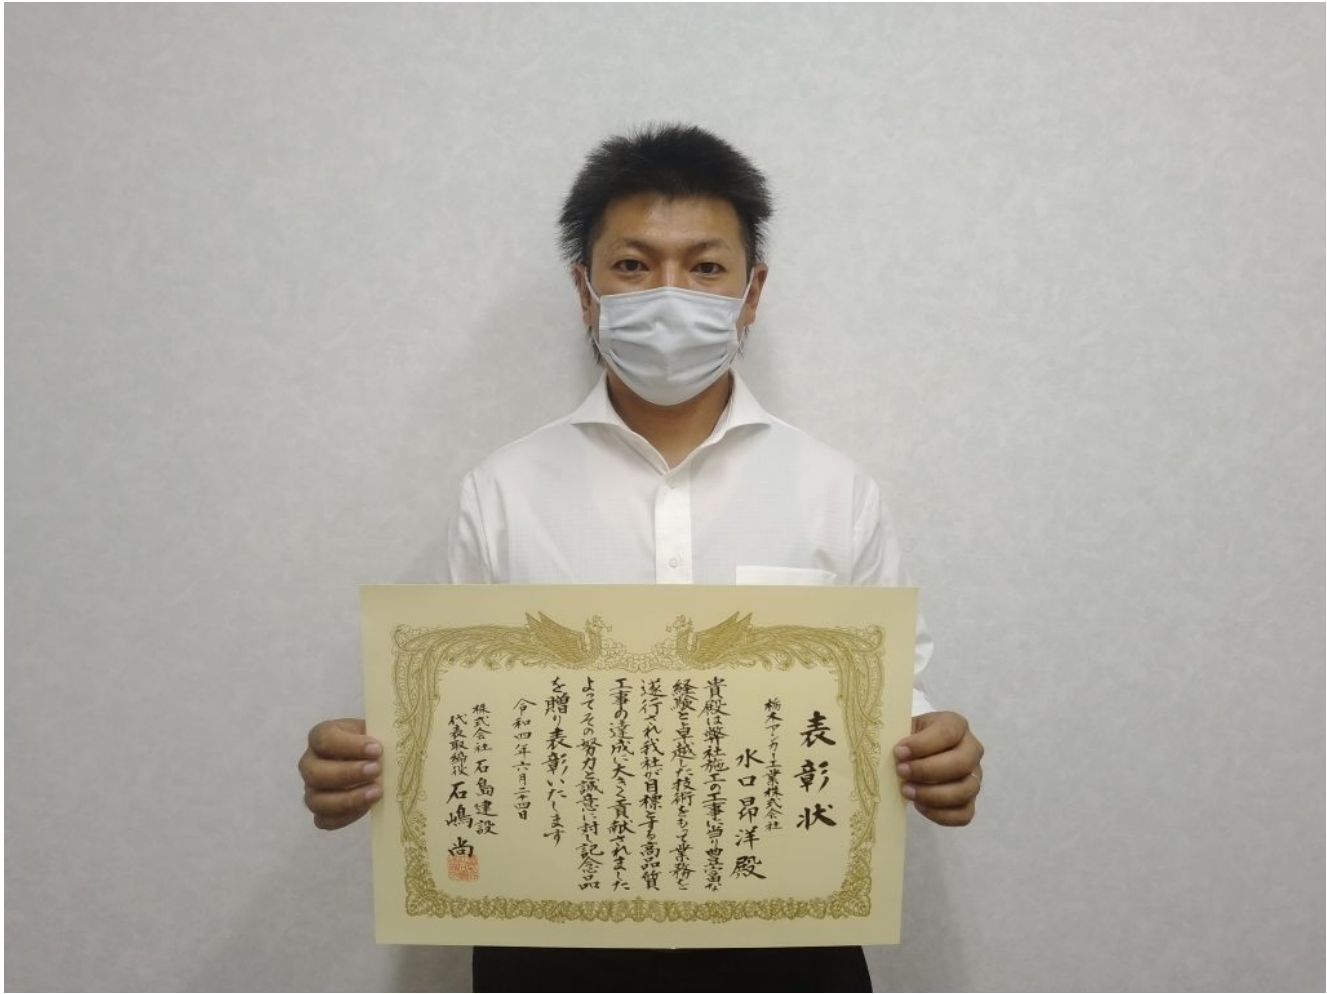 表彰状
栃木アンカー工業株式会社
水口昂洋殿
貴殿は弊社施工の工事に当り豊富な
経験と卓越した技術をもって業務を
遂行され我社が目標とする高品質
工事の達成に大きく貢献されました
よってその努力と誠意に対し記念品
を贈り表彰いたします
令和四年六月二十四日
株式会社石島建設
代表取締役石嶋尚